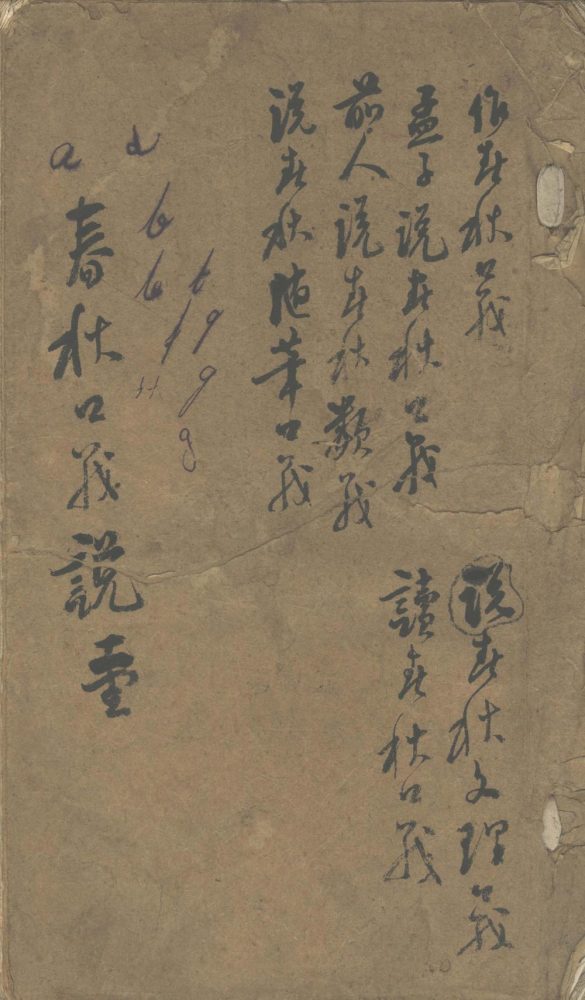 作春秋口義
孟子說春秋口義
前人說春秋類義
說春秋隨筆口義
說春秋文理口義
讀春秋口義
春秋口義說壹
a
b
b